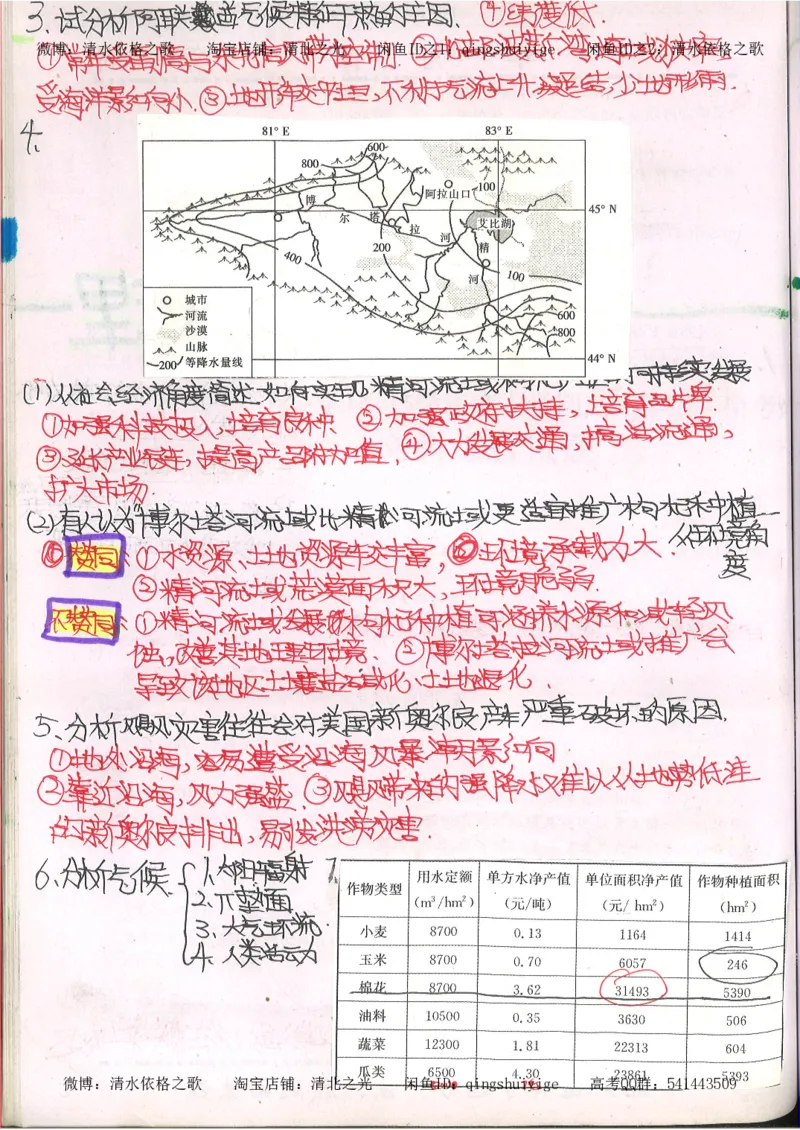 3.试分析阿联酋气候特征干热的主因. ④纬度低.
微博：清水依格之歌 淘宝店铺：清北之光 闲鱼ID之1：qingshuiyige 闲鱼ID之2：清水依格之歌
受海洋影响小.③地形较平坦,不利于气流上升凝结,少地形雨.
4、
81° E 83° E
600
800
100
阿拉山口
博
45° N
尔
塔
拉
艾比湖
河
精
200
400
河
100
城市
河流
沙漠
600
山脉
800
200 等降水量线
44° N
(1)从社会经济角度简述,如何实现精河流域
①加强科技投入,培育良种 ②加强政府扶持,培育品牌
③延长产业链,提高产品附加值. ④大力发展交通,搞活流通,
扩大市场.
(2)有人认为博尔塔拉河流域比精河流域更适宜推广枸杞种植
从环境角度
赞同:①水资源、土地资源较丰富,环境承载力大
②精河流域荒漠面积大,环境脆弱.
不赞同:①精河流域发展枸杞种植可涵养水源和减轻风
蚀,改善其地理环境 ②博尔塔拉河流域推广会
导致该地区土壤盐碱化、土地退化.
5、分析飓风灾害往往会对美国新奥尔良产生严重破坏的原因.
①地处沿海,容易遭受沿海风暴潮影响
②靠近沿海,风力强盛.③飓风带来的强降水难以从地势低洼
的新奥尔良排出,易引发洪涝灾害.
6、分析气候
1.太阳辐射
2.下垫面
3、大气环流
4、人类活动
7
作物类型 用水定额（m³/hm²） 单方水净产值（元/吨） 单位面积净产值（元/ hm²） 作物种植面积（hm²）
小麦 8700 0.13 1164 1414
玉米 8700 0.70 6057 246
棉花 8700 3.62 31493 5390
油料 10500 0.35 3630 506
蔬菜 12300 1.81 22313 604
瓜类 6500 4.30 23861 5393
微博：清水依格之歌 淘宝店铺：清北之光 闲鱼ID：qingshuiyige 高考QQ群：541443509